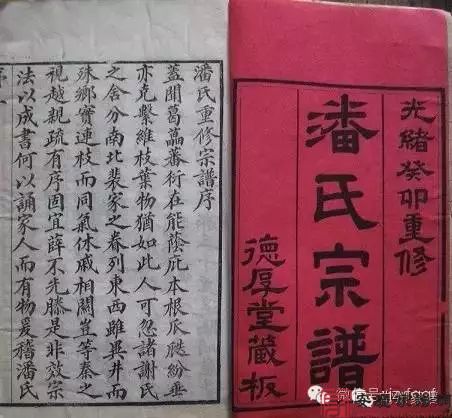 光緒癸卯重修
潘氏宗譜
德厚堂藏板
潘氏重修宗譜序
蓋聞葛藟蕃衍在能蔭庇本根瓜瓞紛垂
亦克縈維枝葉物猶如此人可忽諸謝氏
之舍分南北裴家之眷列東西雖異井而
殊鄉實連枝而同氣休戚相關豈等秦之
視越親疏有序固宜薛不先滕是非效宗
法以成書何以誦家人而有物爰稽潘氏
微信号: